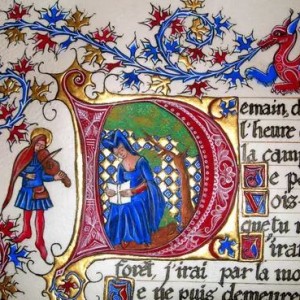 Demain, d
l'heure
la cam
Je pa
Vois-
que tu
J'irai
forêt, j'irai par la mo
Je ne puis demeure